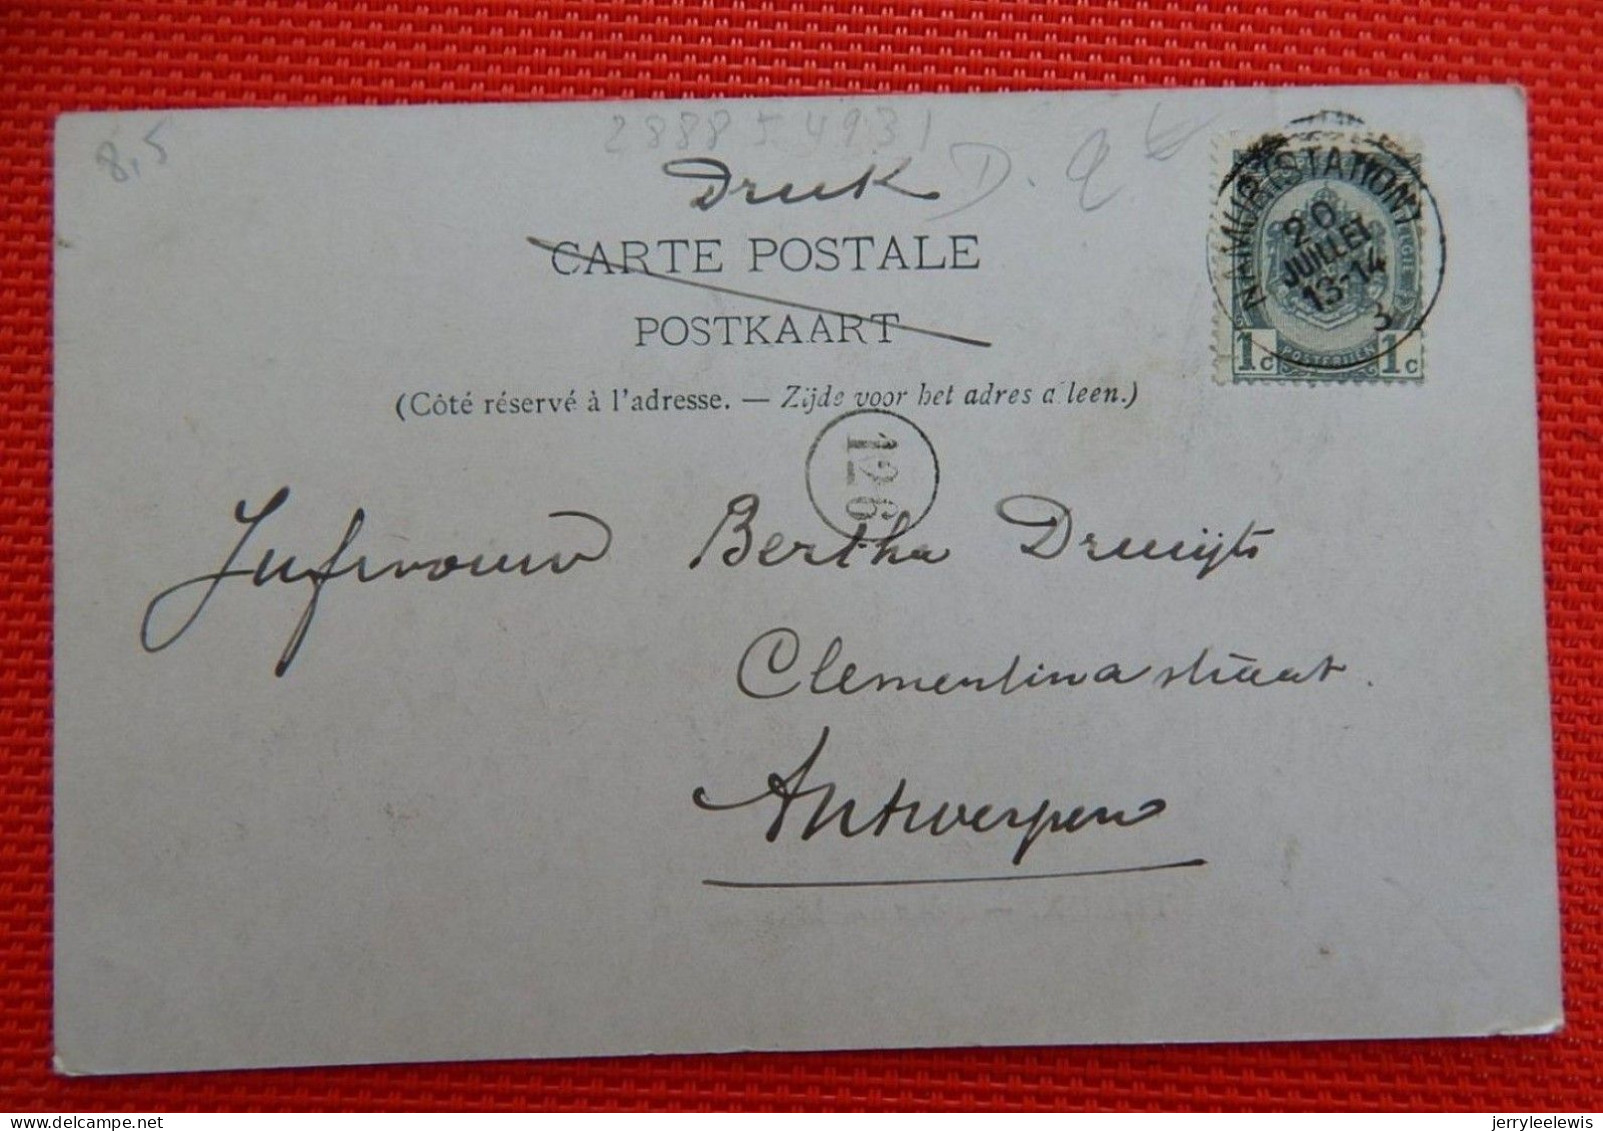 8,5
288854931
Druk
D. Q
CARTE POSTALE
POSTKAART
(Côté réservé à l'adresse. — Zijde voor het adres alleen.)
NAMUR (STATION)
20
JUILLET
13-14
3
BELGIE
POSTERIJEN
1c 1c
126
Jufvrouw Bertha Druijts
Clementina straat.
Antwerpen
jerryleelewis